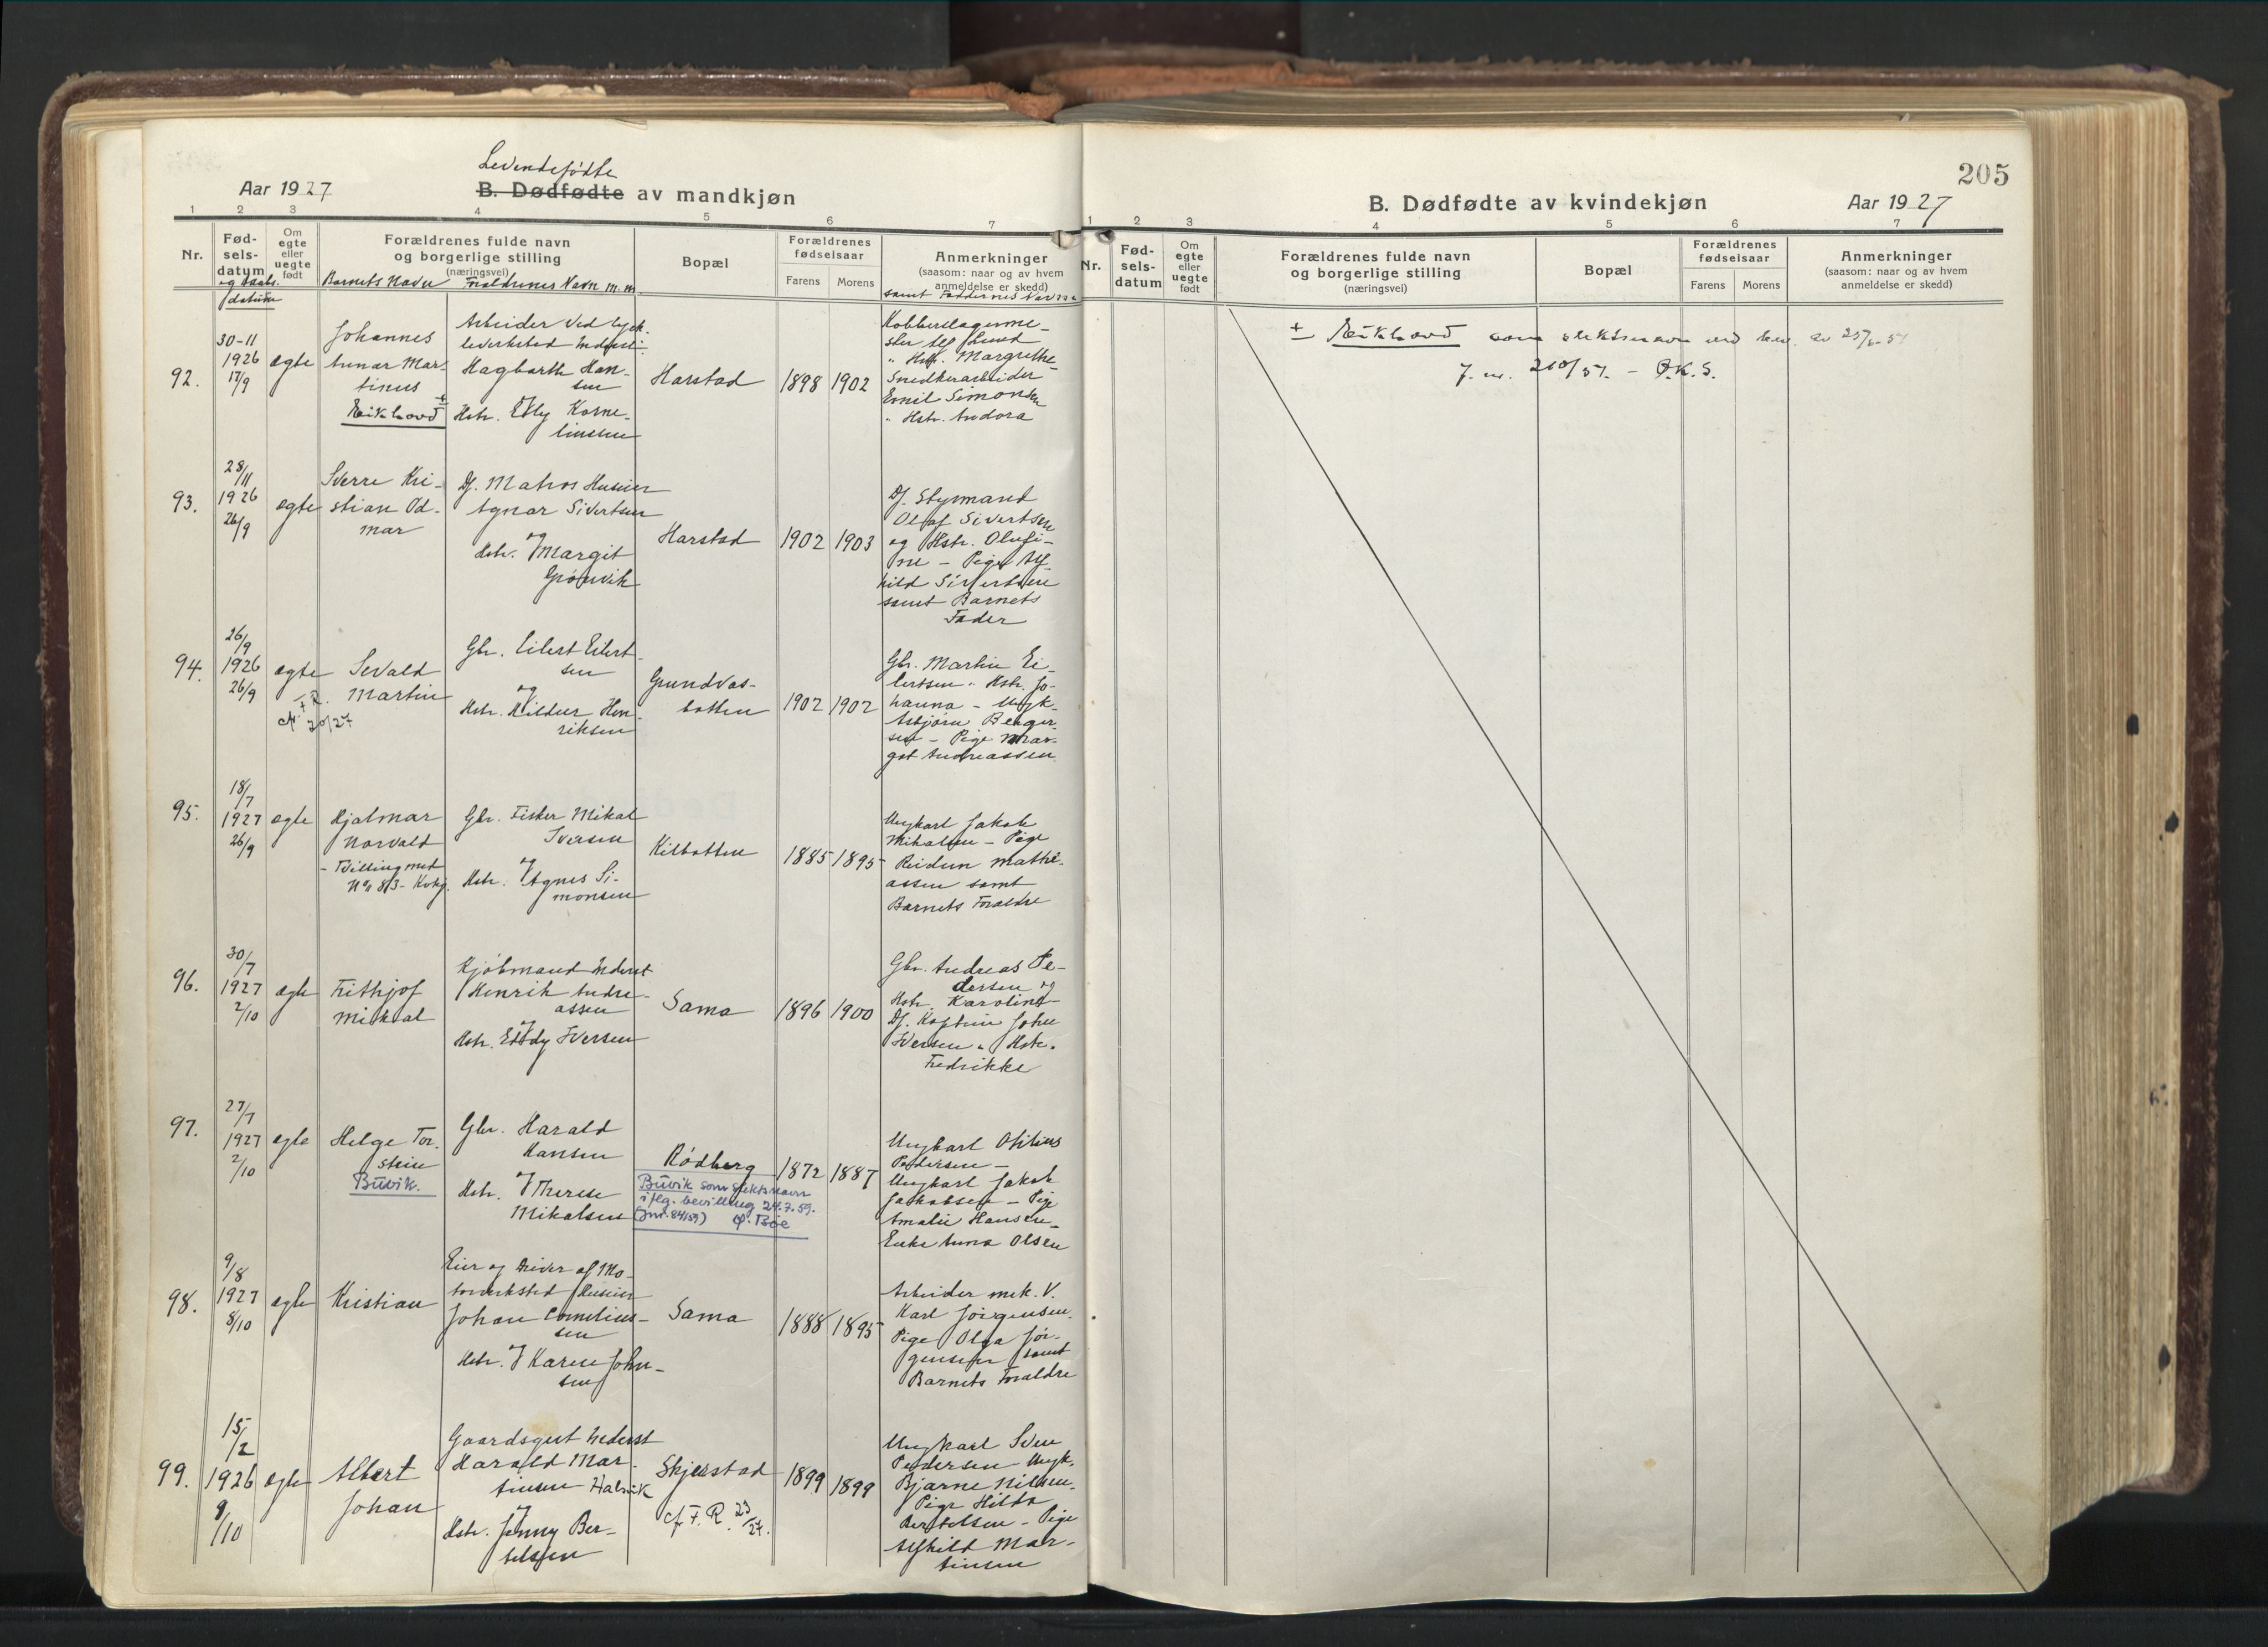 Levendefødte
Aar 1927
B. Dødfødte av mandkjøn
1 2 3 4 5 6 7
Nr.
Fød-
sels-
datum
og Daabs-
datum
Om
egte
eller
uegte
født
Forældrenes fulde navn
og borgerlige stilling
(næringsvei)
Barnets Navn Forældrenes Navn m.m.
Bopæl
Forældrenes
fødselsaar
Farens Morens
Anmerkninger
(saasom: naar og av hvem
anmeldelse er skedd)
samt Faddernes Navne
92.
30-11
1926
17/9
egte
Johannes
Gunar Mar-
tinus
Eikhovd +
Arbeider ved
Hagbarth Han-
sen
Hstr. Edly Korne-
liussen
Harstad
1898 1902
Kobberslagerme-
ster
" Hstr. Margrethe
Snedkerarbeider
Emil Simonsen
" Hstr. Andora
93.
28/11
1926
26/9
egte
Sverre Kri-
stian Od-
mar
Df. Matros Huseier
Agnar Sivertsen
og
Hstr. Margit
Grönvik
Harstad
1902 1903
Df. Styrmand
Olaf Sivertsen
og Hstr. Olufi-
ne - Pige Alf-
hild Sivertsen
samt Barnets
Fader
94.
26/9
1926
26/9
egte
Sevald
Martin
cfr. F. R. 20/27
Gbr. Eilert Eilert-
sen
og
Hstr. Hildur Hen-
riksen
Grundvas-
botten
1902 1902
Gbr. Martin Ei-
lertsen " Hstr. Jo-
hanna - Ungk.
Asbjørn Berger-
sen - Pige Mar-
got Andreassen
95.
18/7
1927
26/9
egte
Hjalmar
Norvald
- Tvilling med
No 83 - Kvkj.
Gbr. Fisker Mikal
Iversen
og
Hstr. Agnes Si-
monsen
Kilbotten
1885 1895
Ungkarl Jakob
Mikalsen - Pige
Reidun Mathi-
assen samt
Barnets Forældre
96.
30/7
1927
2/10
egte
Frithjof
Mikal
Kjöbmand Inderst
Henrik Andre-
assen
og
Hstr. Eddy Iversen
Sama
1896 1900
Gbr. Andreas Pe-
dersen og
Hstr. Karoline
Df. Kaptein Johan
Iversen " Hstr.
Fredrikke
97.
27/7
1927
2/10
egte
Helge Tor-
stein
Buvik.
Gbr. Harald
Hansen
og
Hstr. Therese
Mikalsen
Rödberg
Buvik som slektsnavn
iflg. bevilling 24.7.59.
(Jnr. 84/59) Ø. Bøe
1872 1887
Ungkarl Otilius
Pedersen -
Ungkarl Jakob
Jakobsen - Pige
Amalie Hansen -
Enke Anna Olsen
98.
9/8
1927
8/10
egte
Kristian
Eier og Driver af Mo-
torverksted Huseier
Johan Cornelius-
sen
og
Hstr. Karen John-
sen
Sama
1888 1895
Arbeider mek. V.
Karl Jörgensen.
Pige Olga Jör-
gensen samt
Barnets Forældre
99.
15/2
1926
9/10
egte
Albert
Johan
Gaardsgut Inderst
Harald Mar-
tinsen Halsvik
og
Hstr. Jenny Ber-
telsen
Skjerstad
cfr. F. R. 23/27.
1899 1899
Ungkarl Sven
Pedersen Ungk.
Bjarne Nilsen.
Pige Hilda
Bertelsen - Pige
Alfhild Mar-
tinsen
205
B. Dødfødte av kvindekjøn
Aar 1927
1 2 3 4 5 6 7
Nr.
Fød-
sels-
datum
Om
egte
eller
uegte
født
Forældrenes fulde navn
og borgerlige stilling
(næringsvei)
Bopæl
Forældrenes
fødselsaar
Farens Morens
Anmerkninger
(saasom: naar og av hvem
anmeldelse er skedd)
+ Eikhovd som slektsnavn ved bev. av
J. nr. 210/51. - Ø.K.S.